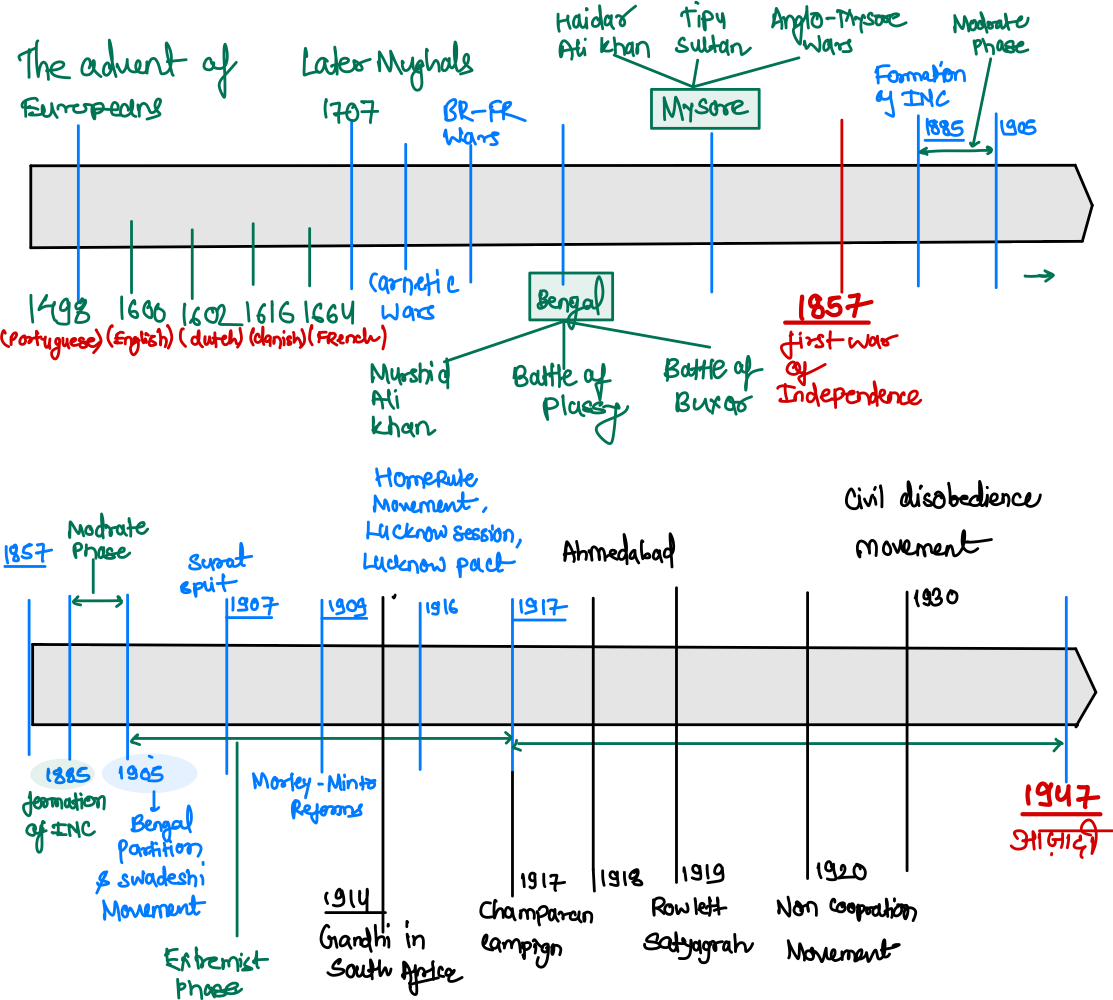 The advent of
Europeans
Later Mughals
1707
BR-FR
Wars
Haidar
Ali Khan
Tipu
Sultan
Anglo-Mysore
Wars
Mysore
Formation
of INC
1885
Modrate
Phase
1905
1498
(Portuguese)
1600
(English)
1602
(dutch)
1616
(danish)
1664
(French)
Carnetic
Wars
Bengal
Murshid
Ali
Khan
Battle of
Plassy
Battle of
Buxar
1857
first war
of
Independence
1857
Modrate
Phase
Surat
split
1907
1909
HomeRule
Movement,
Lucknow session,
Lucknow pact
1916
1917
Ahmedabad
Civil disobedience
Movement
1930
1885
formation
of INC
1905
Bengal
Partition
& swadeshi
Movement
Extremist
Phase
Morley-Minto
Reforms
1914
Gandhi in
South Africa
1917
Champaran
campign
1918
1919
Rowlett
Satyagrah
1920
Non coopration
Movement
1947
आज़ादी